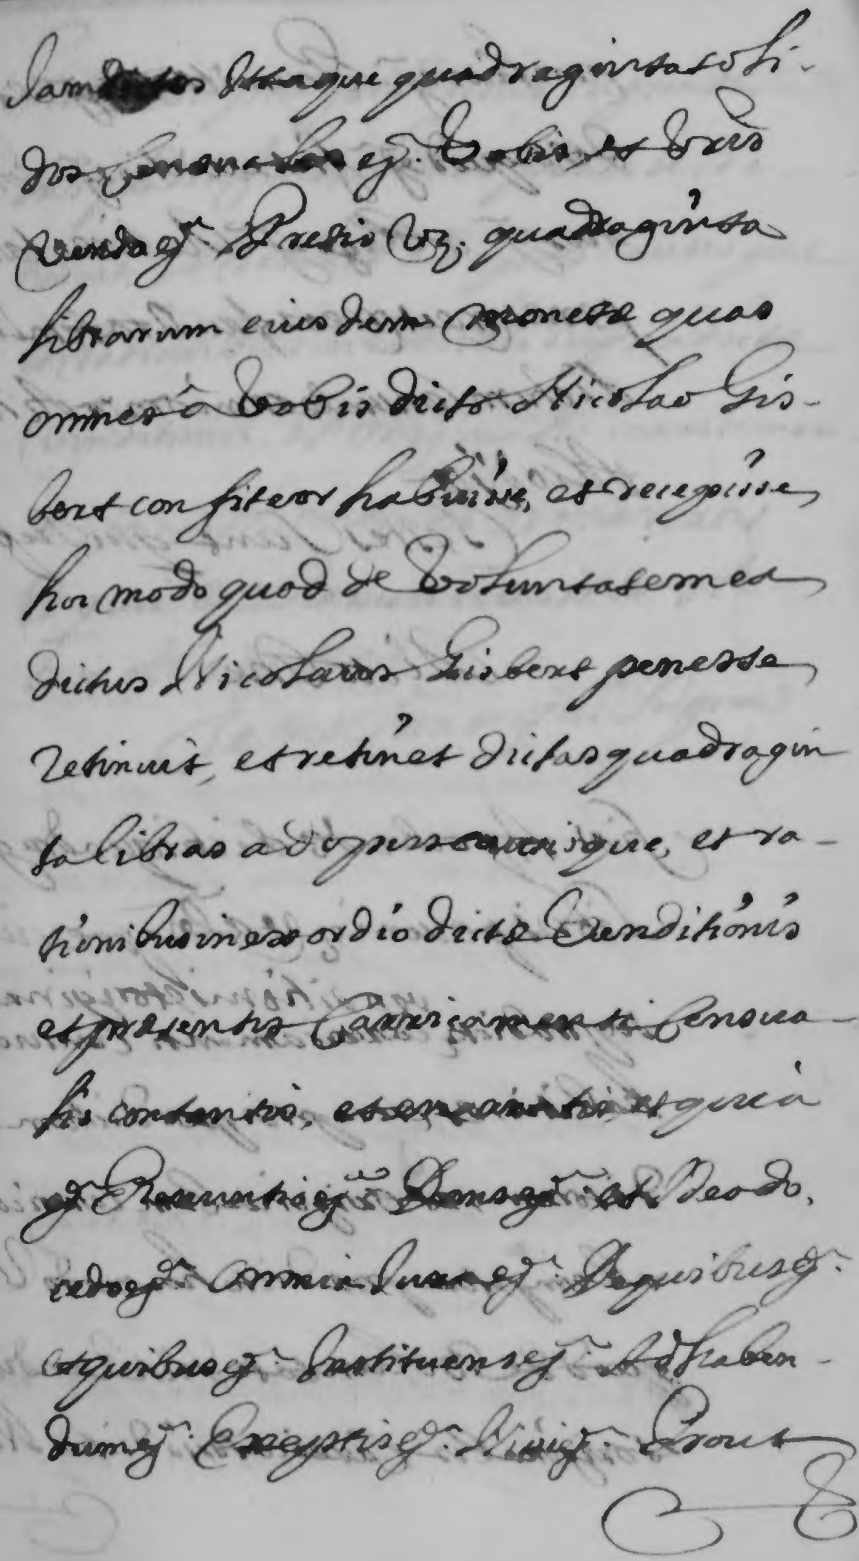 Iamdictos Ittaque quadraginta soli-
dos Censuales ej. Vobis, et Vris
Vendo ej. Pretio Vz. quadraginta
librarum eiusdem monetæ quas
omnes â Vobis dicto Nicolao Gis-
bert confiteor habuisse, et recepisse,
hoc modo quod de Voluntate mea
dictus Nicolaus Gisbert penes se
retinuit, et retinet dictas quadragin
ta libras ad opus et ra-
tionibus in exordio dictæ Venditionis
et præsentis Carricamenti Censua-
lis contentis, et enarratis, et quia
ej. Renuntio ej. Dans ej. et Deodo,
cedo ej. Omnia Iura ej. De quibus ej.
et quibus ej. Instituens ej. Ad haben-
dum ej. Exceptis ej. Nisi ej. Prout